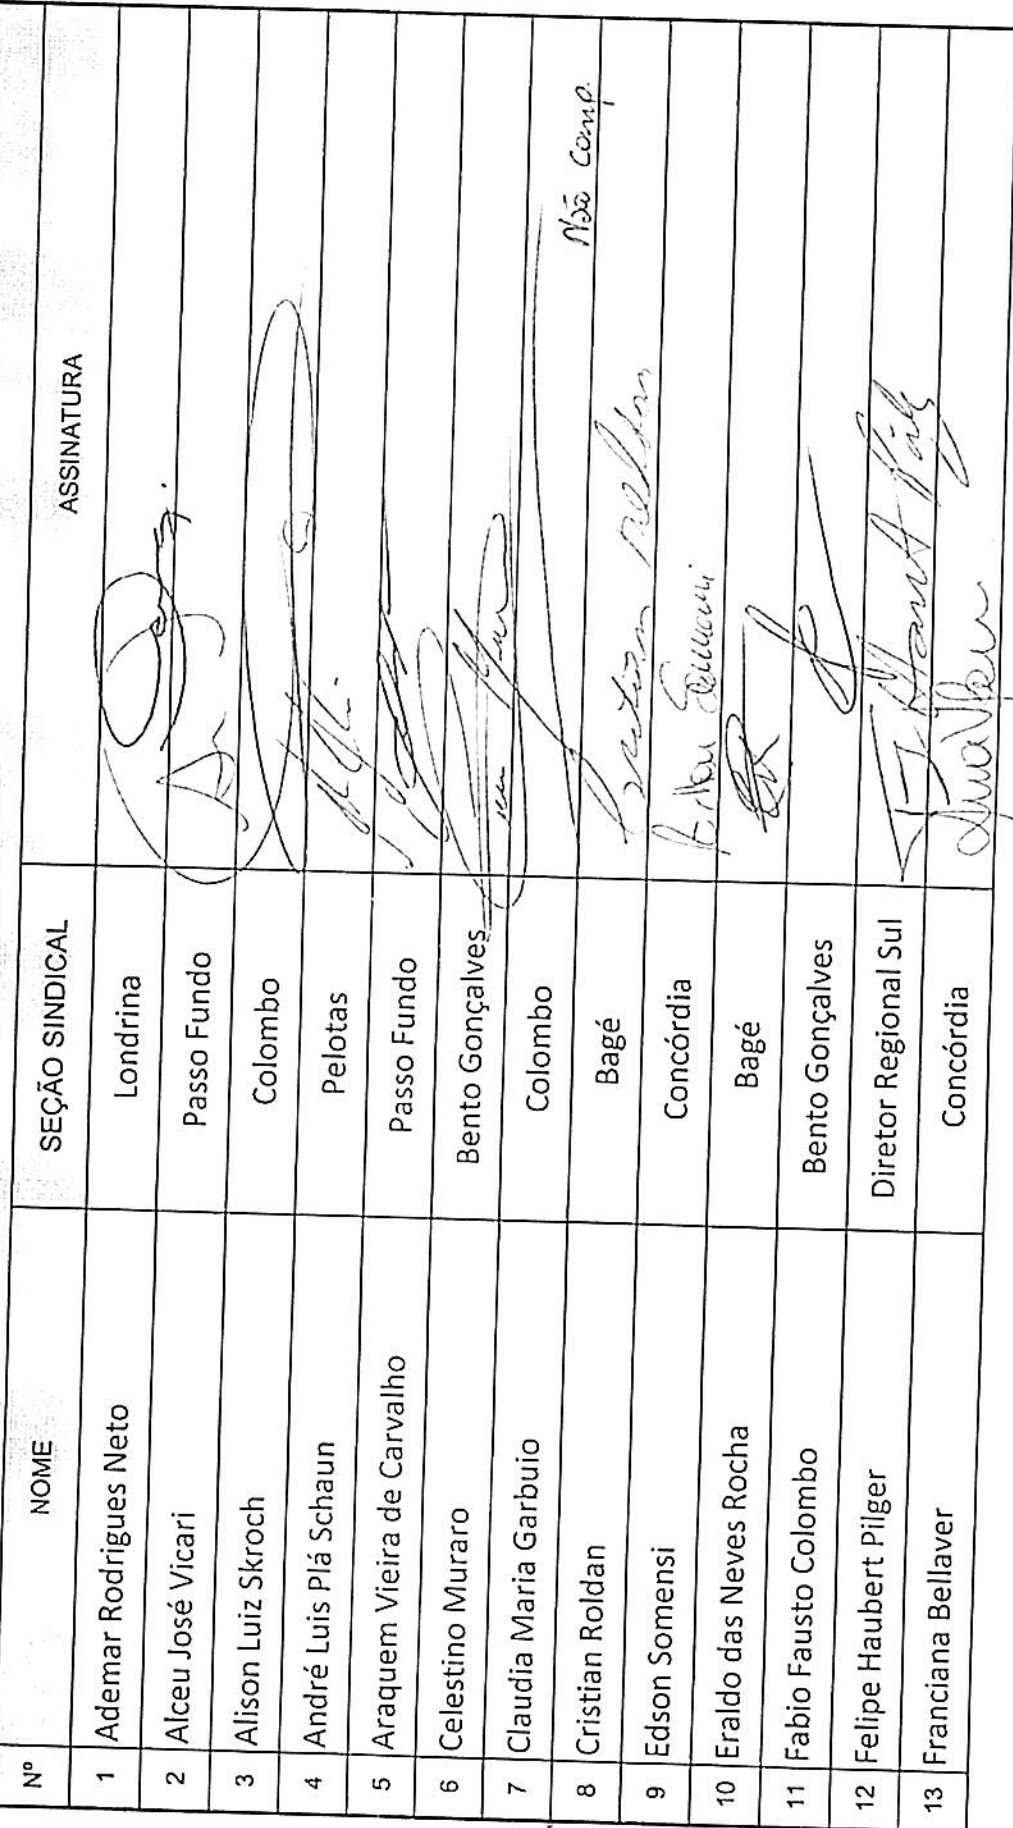 Nº NOME SEÇÃO SINDICAL ASSINATURA
1 Ademar Rodrigues Neto Londrina
2 Alceu José Vicari Passo Fundo
3 Alison Luiz Skroch Colombo
4 André Luis Plá Schaun Pelotas
5 Araquem Vieira de Carvalho Passo Fundo
6 Celestino Muraro Bento Gonçalves
7 Claudia Maria Garbuio Colombo Não comp.
8 Cristian Roldan Bagé
9 Edson Somensi Concórdia
10 Eraldo das Neves Rocha Bagé
11 Fabio Fausto Colombo Bento Gonçalves
12 Felipe Haubert Pilger Diretor Regional Sul
13 Franciana Bellaver Concórdia